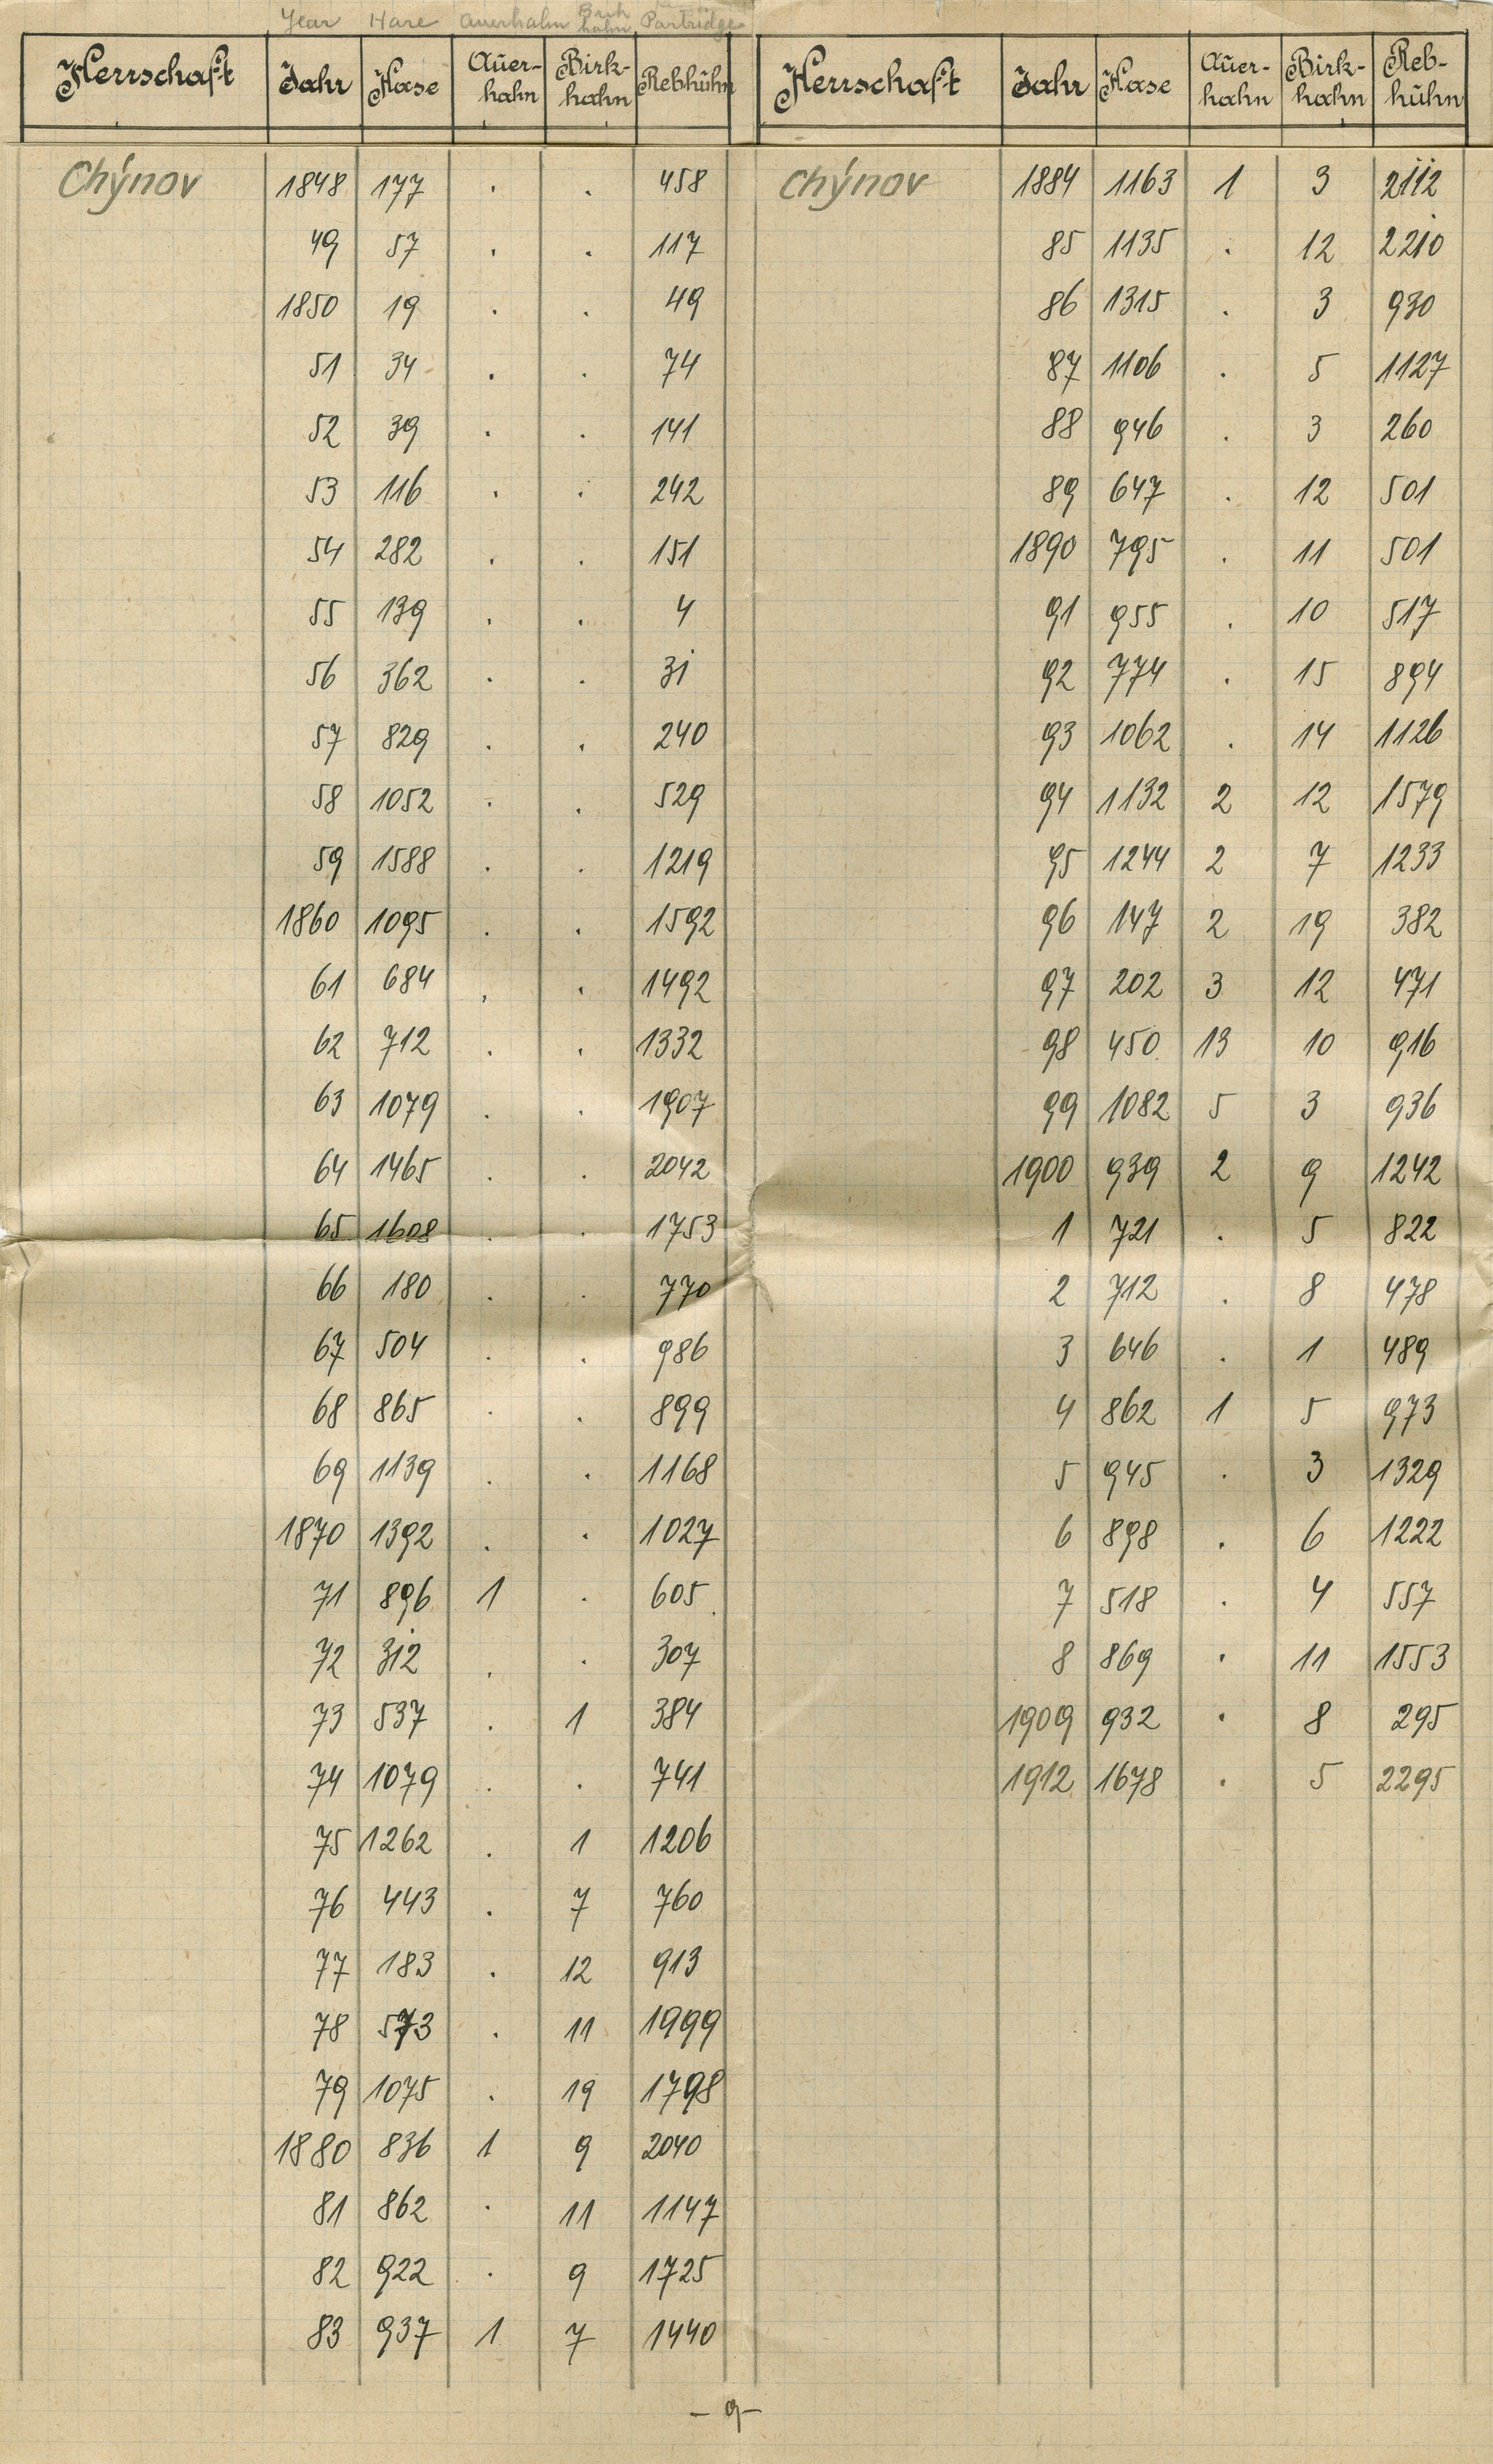 Year Hare Auerhahn Birk hahn Partridge
Herrschaft Jahr Hase Auer-hahn Birk-hahn Rebhuhn
Chýnov 1848 177 . . 458
49 57 . . 117
1850 19 . . 49
51 34 . . 74
52 39 . . 141
53 116 . . 242
54 282 . . 151
55 139 . . 4
56 362 . . 31
57 829 . . 240
58 1052 . . 529
59 1588 . . 1219
1860 1095 . . 1592
61 684 . . 1492
62 712 . . 1332
63 1079 . . 1907
64 1465 . . 2042
65 1608 . . 1753
66 180 . . 770
67 504 . . 986
68 865 . . 899
69 1139 . . 1168
1870 1392 . . 1027
71 896 1 . 605
72 312 . . 307
73 537 . 1 384
74 1079 . . 741
75 1262 . 1 1206
76 443 . 7 760
77 183 . 12 913
78 573 . 11 1999
79 1075 . 19 1798
1880 836 1 9 2040
81 862 . 11 1147
82 922 . 9 1725
83 937 1 7 1440
Herrschaft Jahr Hase Auer-hahn Birk-hahn Reb-huhn
Chýnov 1884 1163 1 3 2112
85 1135 . 12 2210
86 1315 . 3 930
87 1106 . 5 1127
88 946 . 3 260
89 647 . 12 501
1890 795 . 11 501
91 955 . 10 517
92 774 . 15 894
93 1062 . 14 1126
94 1132 2 12 1579
95 1244 2 7 1233
96 147 2 19 382
97 202 3 12 471
98 450 13 10 916
99 1082 5 3 936
1900 939 2 9 1242
1 721 . 5 822
2 712 . 8 478
3 646 . 1 489
4 862 1 5 973
5 945 . 3 1329
6 898 . 6 1222
7 518 . 4 557
8 869 . 11 1553
1909 932 . 8 295
1912 1678 . 5 2295
- 9 -